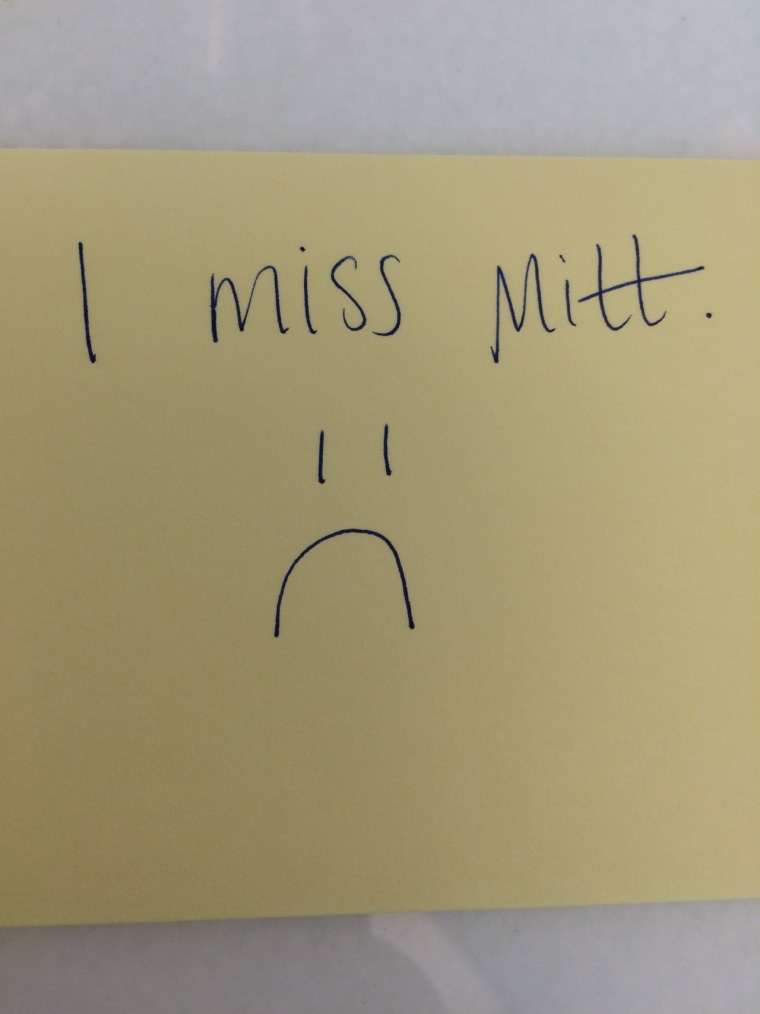 I miss Mitt.